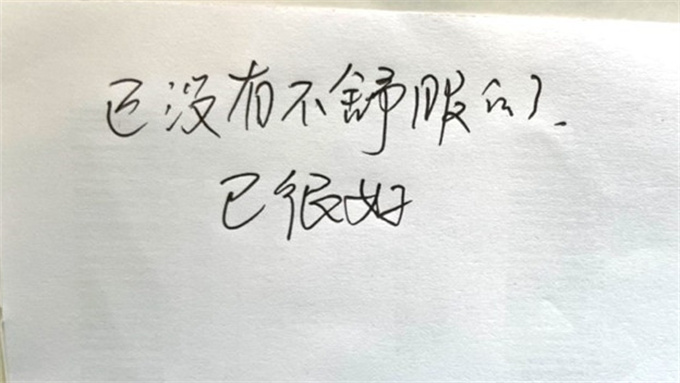 已没有不舒服的了.
已很好